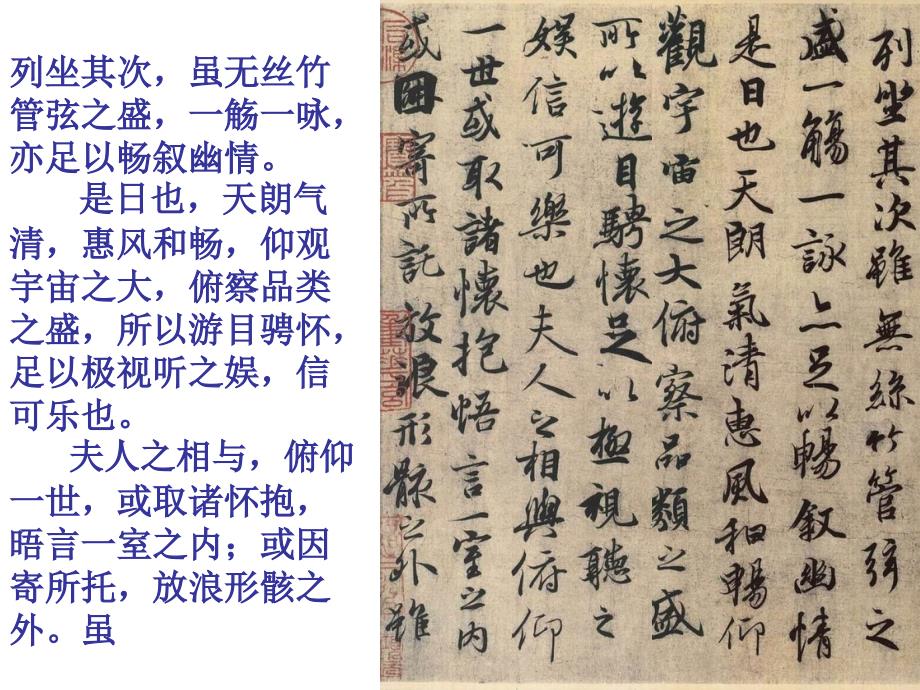 列坐其次，虽无丝竹
管弦之盛，一觞一咏，
亦足以畅叙幽情。
是日也，天朗气
清，惠风和畅，仰观
宇宙之大，俯察品类
之盛，所以游目骋怀，
足以极视听之娱，信
可乐也。
夫人之相与，俯仰
一世，或取诸怀抱，
晤言一室之内；或因
寄所托，放浪形骸之
外。虽
列坐其次雖無絲竹管弦之
盛一觴一詠亦足以暢叙幽情
是日也天朗氣清惠風和暢仰
觀宇宙之大俯察品類之盛
所以遊目騁懷足以極視聽之
娛信可樂也夫人之相與俯仰
一世或取諸懷抱悟言一室之内
或因寄所託放浪形骸之外雖